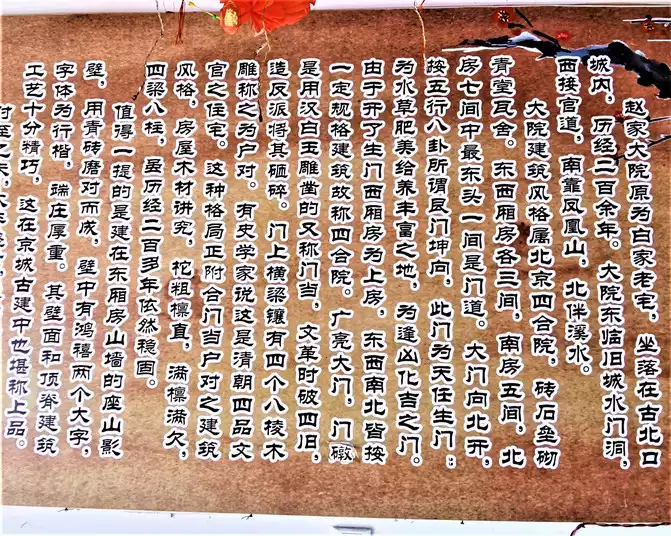 赵家大院原为白家老宅，坐落在古北口
城内，历经二百余年。大院东临旧城水门洞，
西接官道，南靠凤凰山，北伴溪水。
大院建筑风格属北京四合院，砖石垒砌
青堂瓦舍。东西厢房各三间，南房五间，北
房七间中最东头一间是门道。大门向北开，
按五行八卦所谓艮门坤向，此门为天任生门；
为水草肥美给养丰富之地，为逢凶化吉之门。
由于开了生门西厢房为上房，东西南北皆按
一定规格建筑故称四合院。广亮大门，门礅
是用汉白玉雕凿的又称门当，文革时破四旧，
造反派将其砸碎。门上横梁镶有四个八棱木
雕称之为户对。有史学家说这是清朝四品文
官之住宅。这种格局正附合门当户对之建筑
风格，房屋木材讲究，柁粗檩直，满檩满欠，
四梁八柱，虽历经二百多年依然稳固。
值得一提的是建在东厢房山墙的座山影
壁，用青砖磨对而成，壁中有鸿禧两个大字，
字体为行楷，端庄厚重。其壁面和顶脊建筑
工艺十分精巧，这在京城古建中也堪称上品。